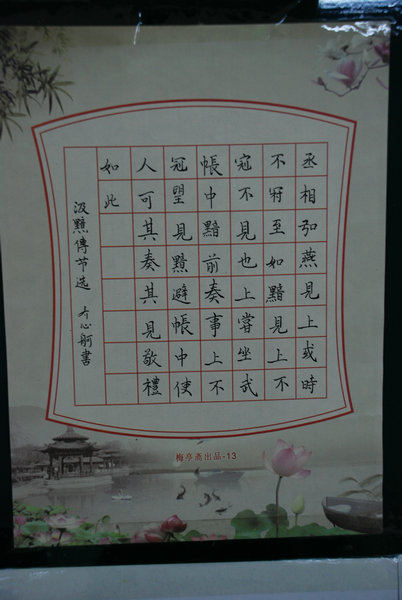 丞相弘燕見上或時
不冠至如黯見上不
冠不見也上嘗坐武
帳中黯前奏事上不
冠望見黯避帳中使
人可其奏其見敬禮
如此
汲黯傳节选 心舸書
梅亭斋出品-13